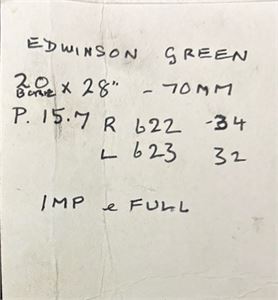 EDWINSON GREEN
20 BORE x 28" - 70MM
P. 15.7 R 622 -34
L 623 32
IMP e FULL